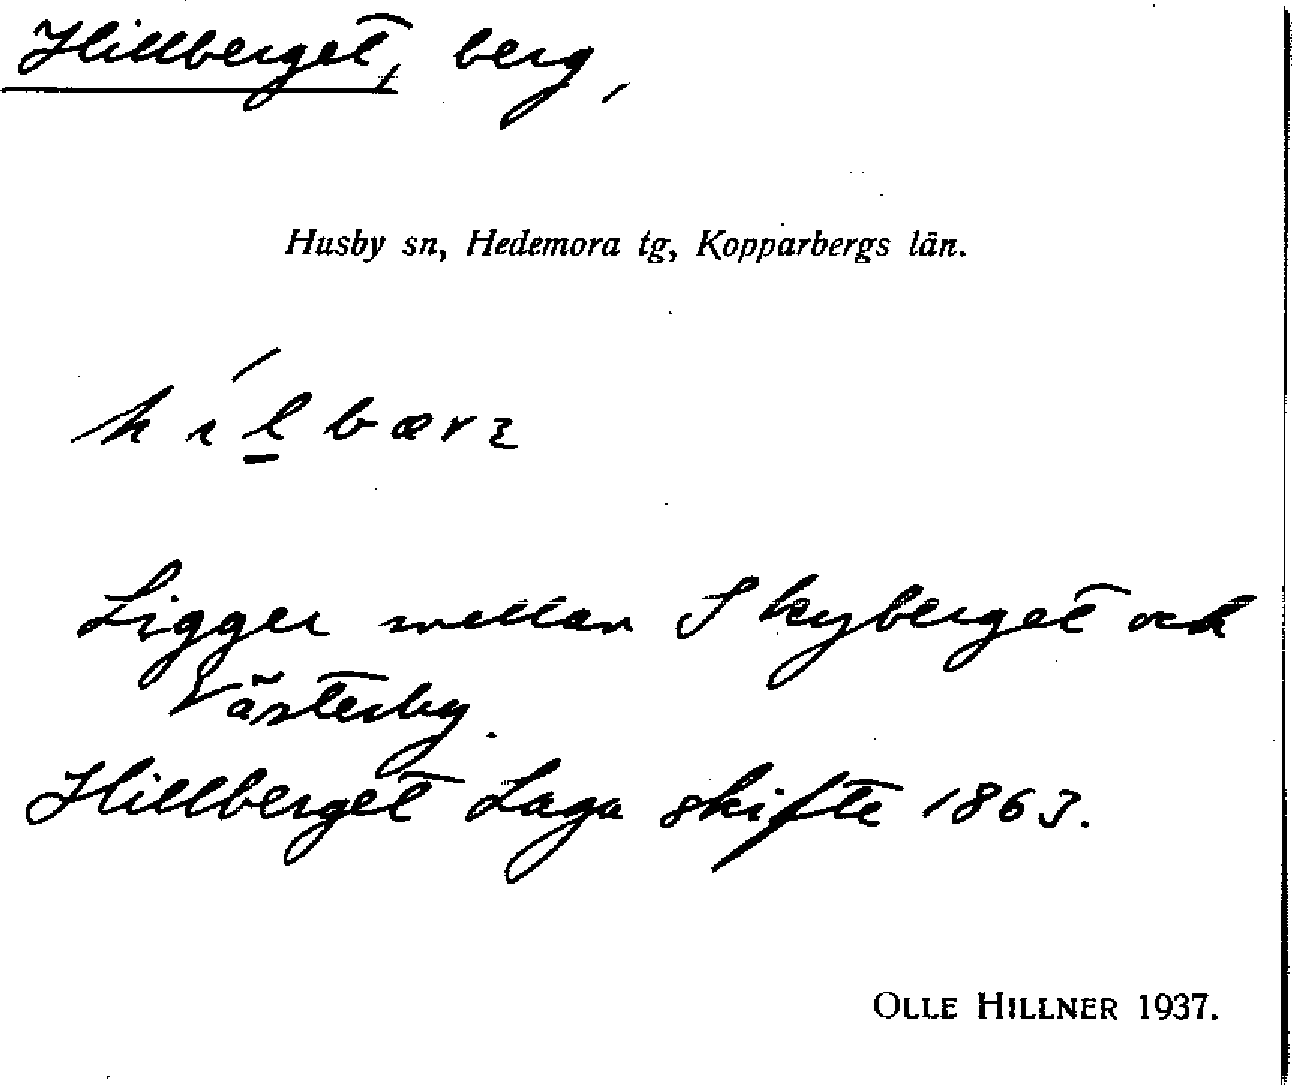 Hillberget, berg,
Husby sn, Hedemora tg, Kopparbergs län.
hílbærɛ
Ligger mellan Skyberget och
Västerby.
Hillberget Laga skifte 1863.
OLLE HILLNER 1937.